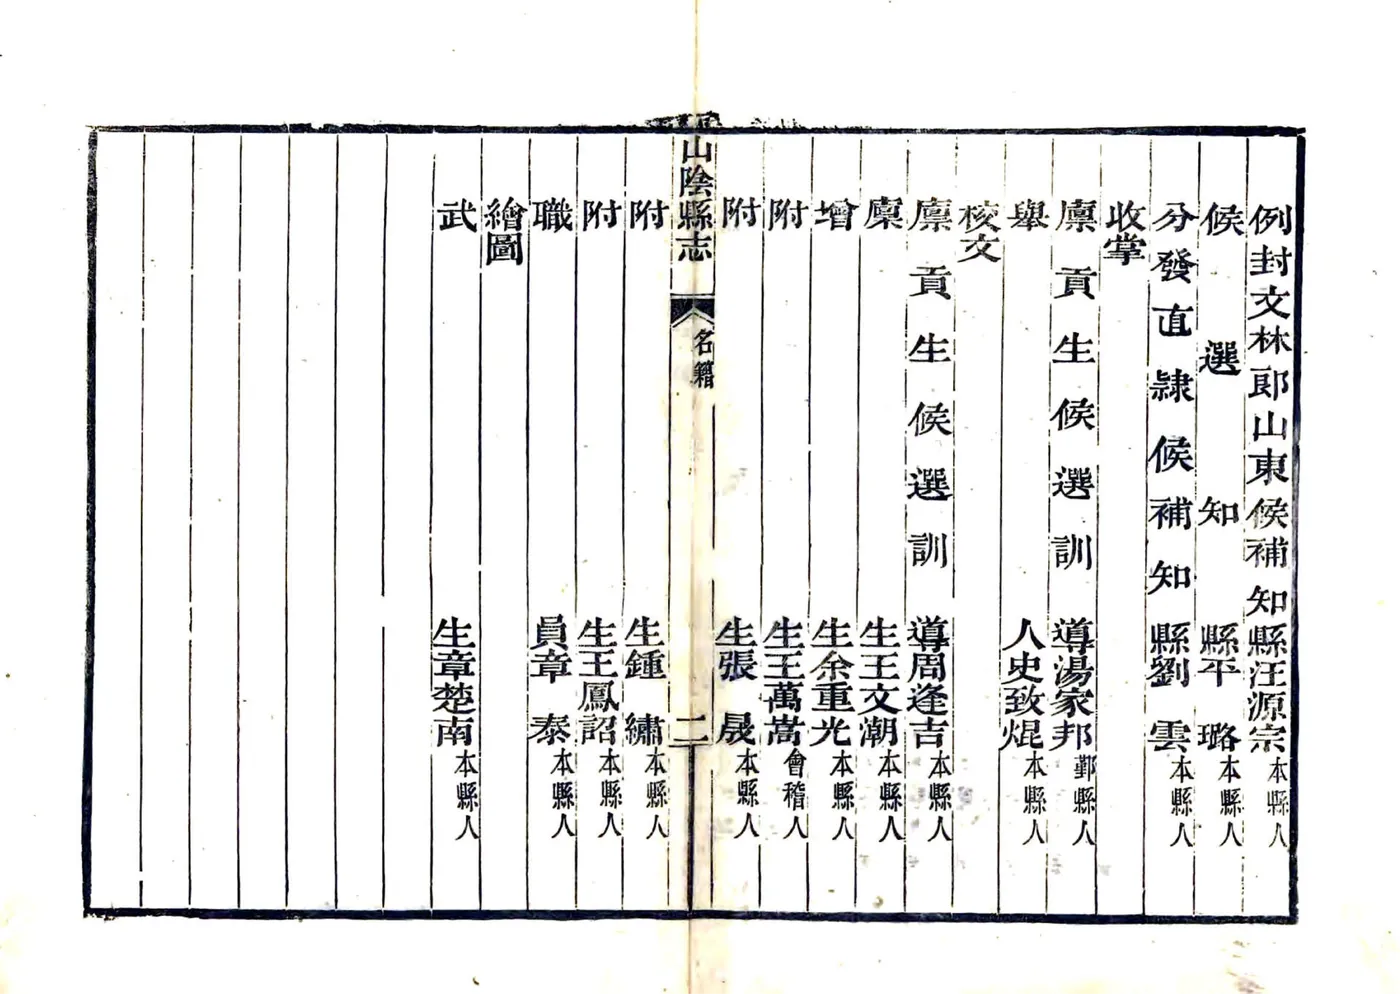 例封文林郎山東候補知縣汪源宗本縣人
候選知縣平璐本縣人
分發直隷候補知縣劉雲本縣人
收掌
廪貢生候選訓導湯家邦鄞縣人
舉人史致焜本縣人
校文
廪貢生候選訓導周逢吉本縣人
廩生王文潮本縣人
增生余重光本縣人
附生王萬嵩會稽人
附生張晟本縣人
山陰縣志
名籍
二
附生鍾繡本縣人
附生王鳳詔本縣人
職員章泰本縣人
繪圖
武生章楚南本縣人